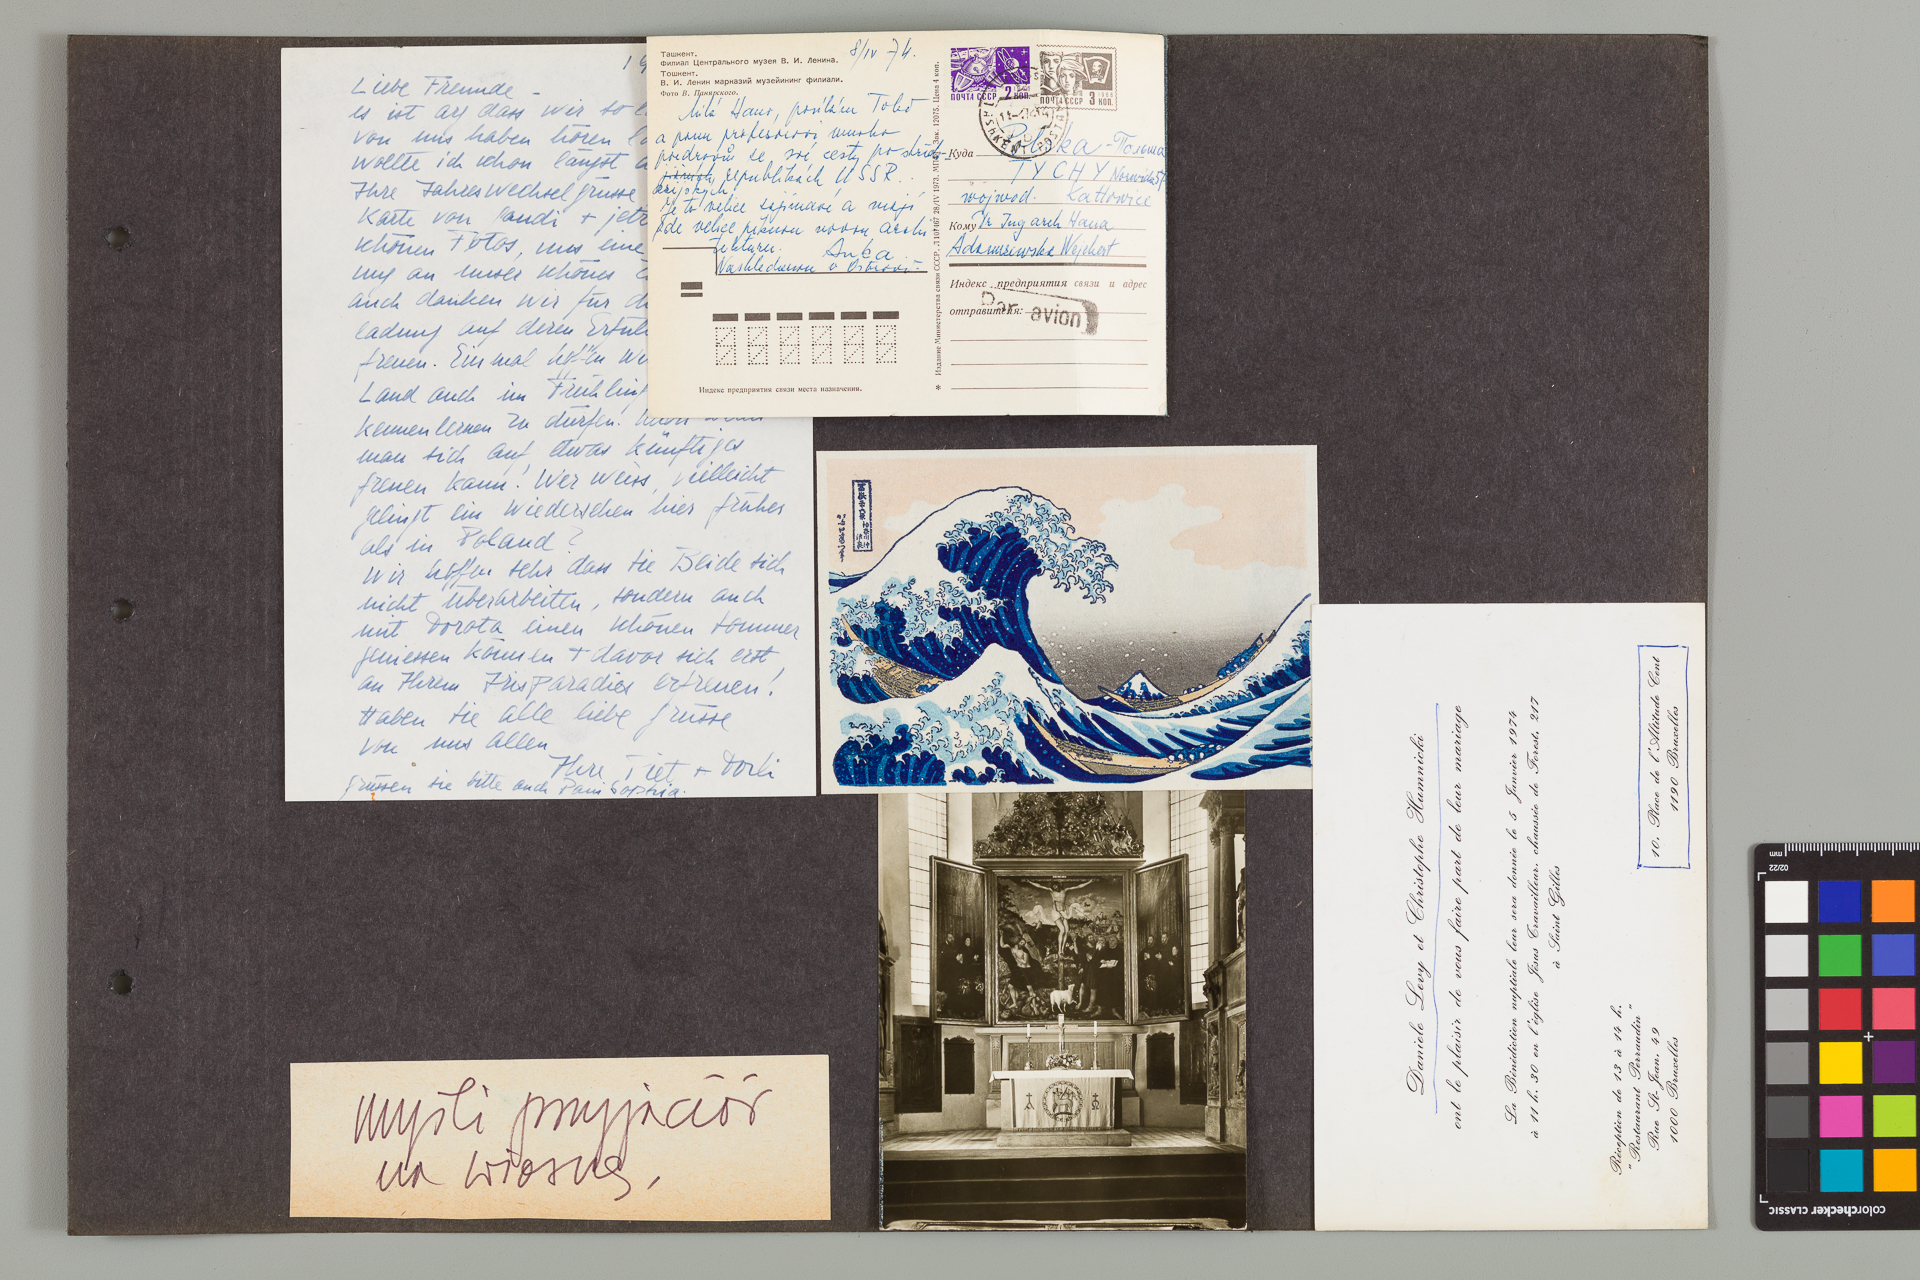 Liebe Freunde -
es ist arg dass wir so
von uns haben hören
wollte ich schon längst
Ihre Jahreswechselgrüsse
Karte von Sandi + jetzt
schönen Fotos, uns eine
ung an unser schönes
auch danken wir für
ladung auf deren
freuen. Einmal hoffen
Land auch im
kennenlernen zu dürfen.
man sich auf etwas künftiges
freuen kann! Wer weiss, vielleicht
gelingt ein Wiedersehen hier früher
als in Poland?
Wir hoffen sehr dass Sie Beide sich
nicht überarbeiten, sondern auch
mit Dorota einen schönen Sommer
geniessen können + davor sich erst
an Ihrem Irisparadies erfreuen!
Haben Sie alle liebe Grüsse
von uns allen
Ihre Tiet + Dorli
Grüssen sie bitte auch Pani
Ташкент.
Филиал Центрального музея В. И. Ленина.
Тошкент.
В. И. Ленин марказий музейининг филиали.
Фото В. Панярского.
8/IV 74.
Milá Hano, posílám Tobě
a panu profesorovi mnoho
pozdravů se své cesty po středo-
asijských republikách USSR.
Je to velice zajímavé a mají
zde velice peknou novou archi
tekturu. Anka
Nashledanou v
* Издание Министерства связи СССР. 28/IV 1973. Зак. 12075. Цена 4 коп.
ПОЧТА СССР 2 КОП.
ПОЧТА СССР 3 КОП.
TASHKENT
Куда Polska - Польша
TYCHY Norwida
wojwod. Kattowice
Кому Dr Ing arch Hana
Adamczewska Wejchert
Индекс предприятия связи и адрес
отправителя:
Par avion
Индекс предприятия связи места назначения.
Daniele Levy et Christophe Humnicki
ont le plaisir de vous faire part de leur mariage
La Bénédiction nuptiale leur sera donnée le 5 Janvier 1974
à 11 h. 30 en l'église Jésus Travailleur, chaussée de Forest, 217
à Saint Gilles
Réception de 13 à 14 h.
"Restaurant Perraudin"
Rue St-Jean, 49
1000 Bruxelles
10, Place de l'Altitude Cent
1190 Bruxelles
myśli przyjaciół
na wiosnę,
mm
02/22
colorchecker CLASSIC